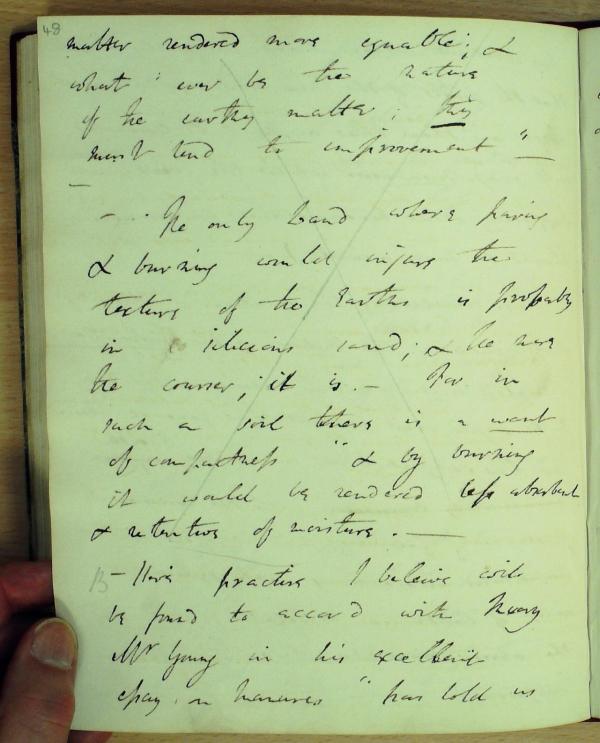 48
matter rendered more equable; &
what "ever be the nature
of the earthy matter; this
must tend to improvement "_
—
— . The only land where paring
& burning would injure the
texture of the Earths is probably
in silicious sand; & the more
the courser, it is. — For in
such a soil there is a want
of compactness " & by burning
it would be rendered less absorbent
& retentive of moisture. —
— Here practise I beleive will
be found to accord with theory
Mr Young in his excellent
essay, on Manures " has told us